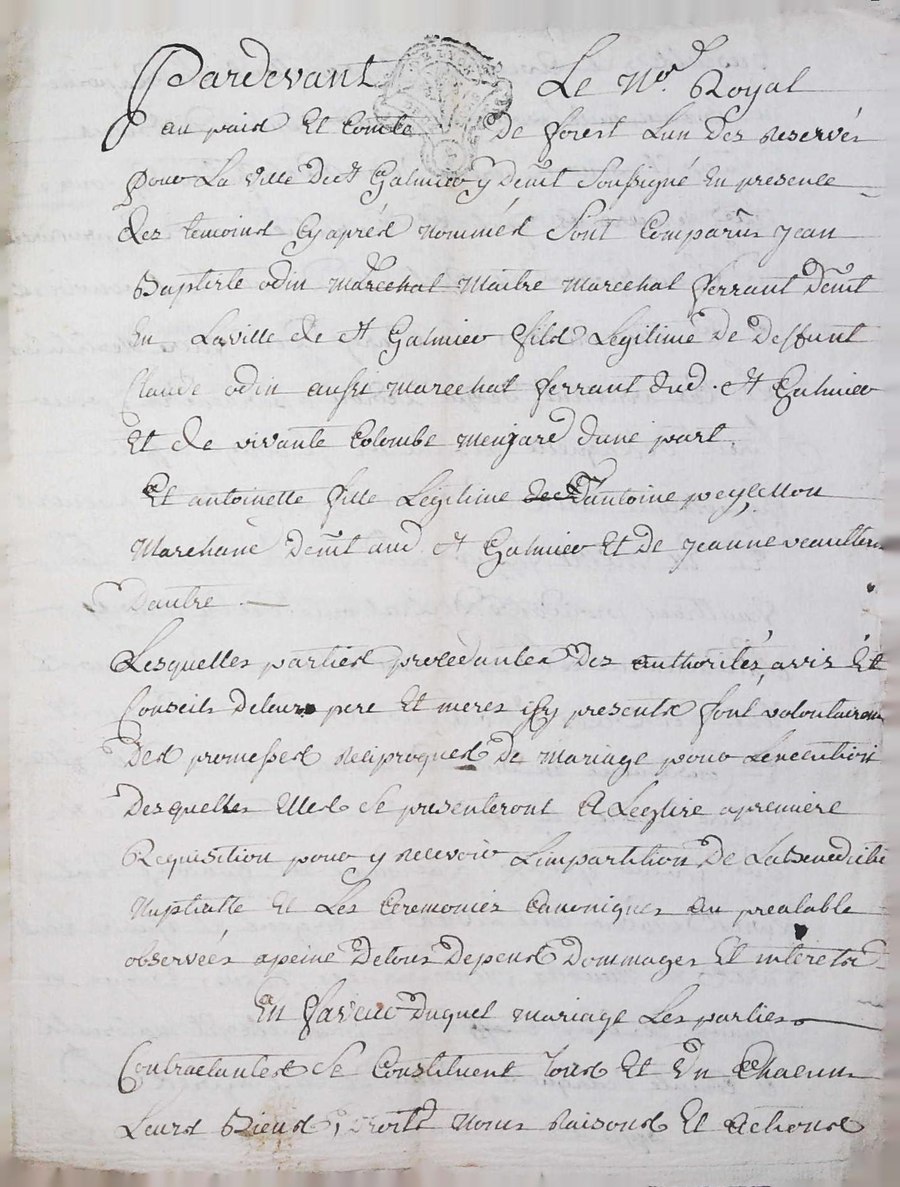 Pardevant Le No.re Royal
au paid Et Comté de forest Lun des Reservés
pour La Ville de St Galmier y demt Soussigné En presence
des temoins Cyaprés nommés Sont Comparûs jean
Baptiste odin marechal Maitre marechal ferrant demt
En La ville de St Galmier fils Legitime de deffunt
Claude odin aussi marechal ferrant dud. St Galmier
Et de vivante Colombe mengard dune part
Et antoinette fille Legitime dantoine peyssellon
Marchand demt aud St Galmier Et de jeanne
Dautre
Lesquelles parties procedantes des authorités avis Et
Conseils de leurs pere Et meres icy presents font volontairem
Des promesses Reciproques de mariage pour Lexecution
Desquelles Elles Se presenteront A Leglise apremiere
Requisition pour y Recevoir Limpartition De La Benedictio
Nuptialle Et Les Ceremonies Canoniques au prealable
observées apeine de tous depens Dommages Et interets
En faveur duquel mariage Les parties
Contractantes Se Constituent tous Et Un Chacuns
Leurs Biens, droits noms Raisons Et actions